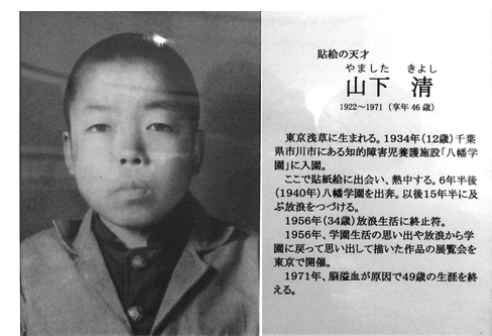 貼絵の天才
やました きよし
山下 清
1922～1971(享年46歳)
東京浅草に生まれる。1934年(12歳)千葉
県市川市にある知的障害児養護施設「八幡学
園」に入園。
ここで貼紙絵に出会い、熱中する。6年半後
(1940年)八幡学園を出奔。以後15年半に及
ぶ放浪をつづける。
1956年(34歳)放浪生活に終止符。
1956年、学園生活の思い出や放浪から学
園に戻って思い出して描いた作品の展覧会を
東京で開催。
1971年、脳溢血が原因で49歳の生涯を終
える。